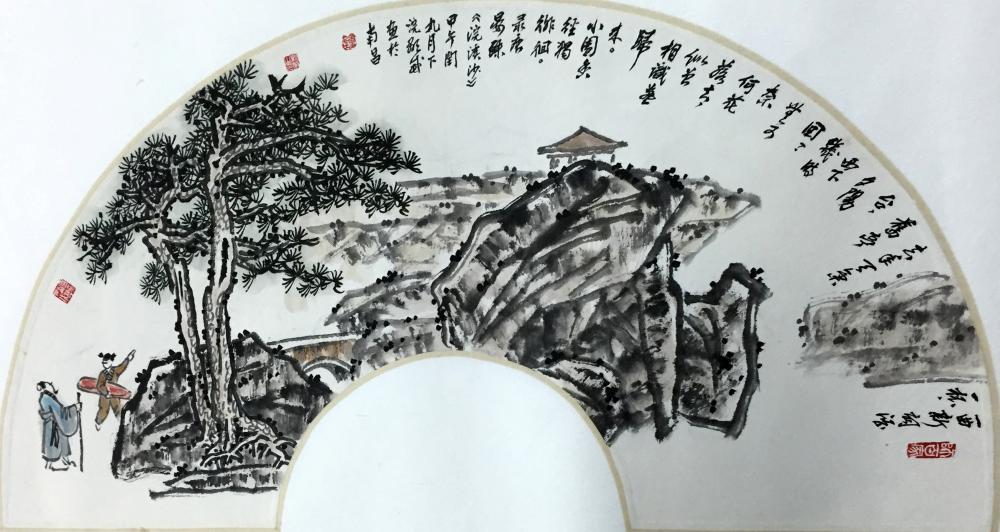 一曲新詞酒
一杯。
去年天氣
舊亭
台。
夕陽
西下
幾時
回。
無可
奈
何花
落去
似曾
相識燕
歸
来。
小園香
徑獨
徘徊。
录唐
晏殊
《浣溪沙》
甲午閏
九月下
画於
南昌